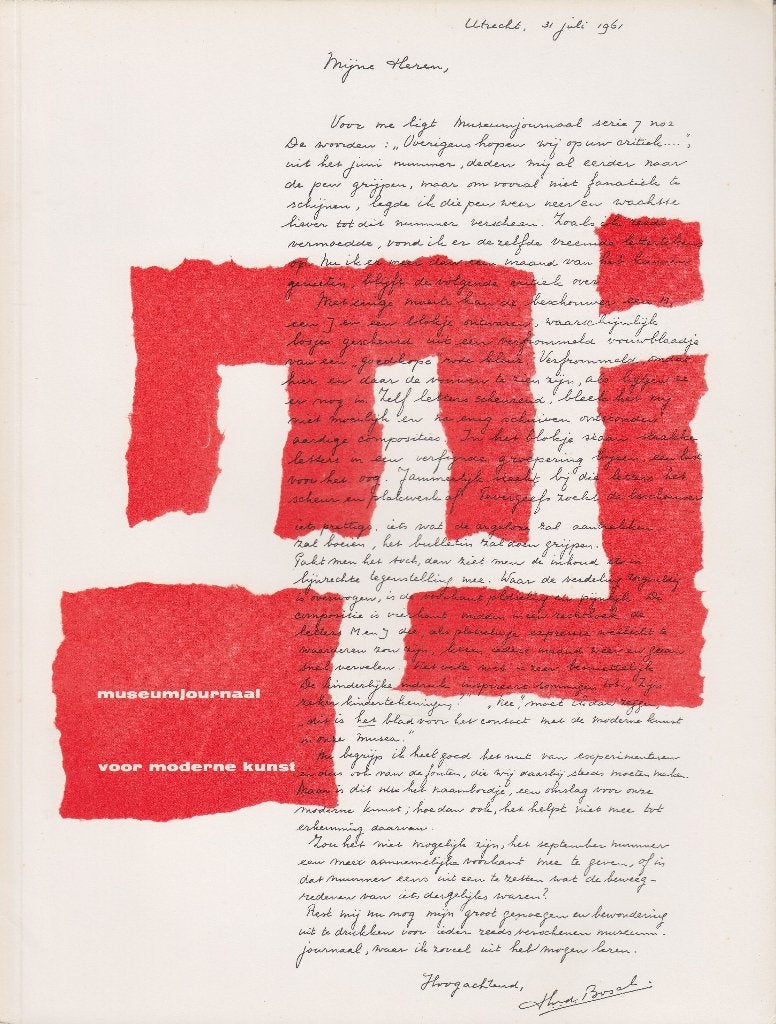 Utrecht, 31 juli 1961
Mijne Heren,
Voor me ligt Museumjournaal serie 7 no 2
De woorden: „Overigens hopen wij op uw critiek....",
uit het juni nummer, deden mij al eerder naar
de pen grijpen, maar om vooral niet fanatiek te
schijnen, legde ik die pen weer neer en wachtte
liever tot dit nummer verscheen. Zoals ik reeds
vermoedde, vond ik er dezelfde vreemde lettertekens
op. Nu ik er meer dan een maand van het kunnen
genieten, blijft de volgende critiek over
Met enige moeite kan de beschouwer een M,
een J en een blokje ontwaren, waarschijnlijk
losjes gescheurd uit een verfrommeld vouwblaadje
van een goedkope rode kleur. Verfrommeld, omdat
hier en daar de vouwen te zien zijn, als liggen ze
er nog in. Zelf letters scheurend, bleek het mij
niet moeilijk en na enig schuiven ontstonden
aardige composities. In het blokje staan strakke
letters in een verfijnde groepering bijeen, een lust
voor het oog. Jammerlijk steekt bij die letters het
scheur en plakwerk af. Tevergeefs zocht de beschouwer
iets prettigs, iets wat de argeloze zal aantrekken
zal boeien, het bulletin zal doen grijpen.
Pakt men het toch, dan ziet men de inhoud in
lijnrechte tegenstelling mee. Waar de verdeling zorgvuldig
is overwogen, is de voorkant plotseling en pijnlijk. De
compositie is vierkant midden in een rechthoek de
letters M en J die als plotselinge expressie wellicht te
waarderen zou zijn, keren iedere maand weer en gaan
snel vervelen.
De kinderlijke inspireert sommigen tot: „Zijn
zeker kindertekeningen?" „Nee", moet ik dan zeggen
„dit is het blad voor het contact met de moderne kunst
in onze musea."
Nu begrijp ik heel goed het nut van experimenteren
en dus ook van de fouten, die wij daarbij steeds moeten maken.
Maar is dit nu het naambordje, een omslag voor onze
moderne kunst; hoe dan ook, het helpt niet mee tot
erkenning daarvan.
Zou het niet mogelijk zijn, het september nummer
een meer aannemelijke voorkant mee te geven, of in
dat nummer eens uit een te zetten wat de beweeg-
redenen van iets dergelijks waren?
Rest mij nu nog mijn groot genoegen en bewondering
uit te drukken voor ieder reeds verschenen museum-
journaal, waar ik zoveel uit heb mogen leren.
Hoogachtend,
museumjournaal
voor moderne kunst